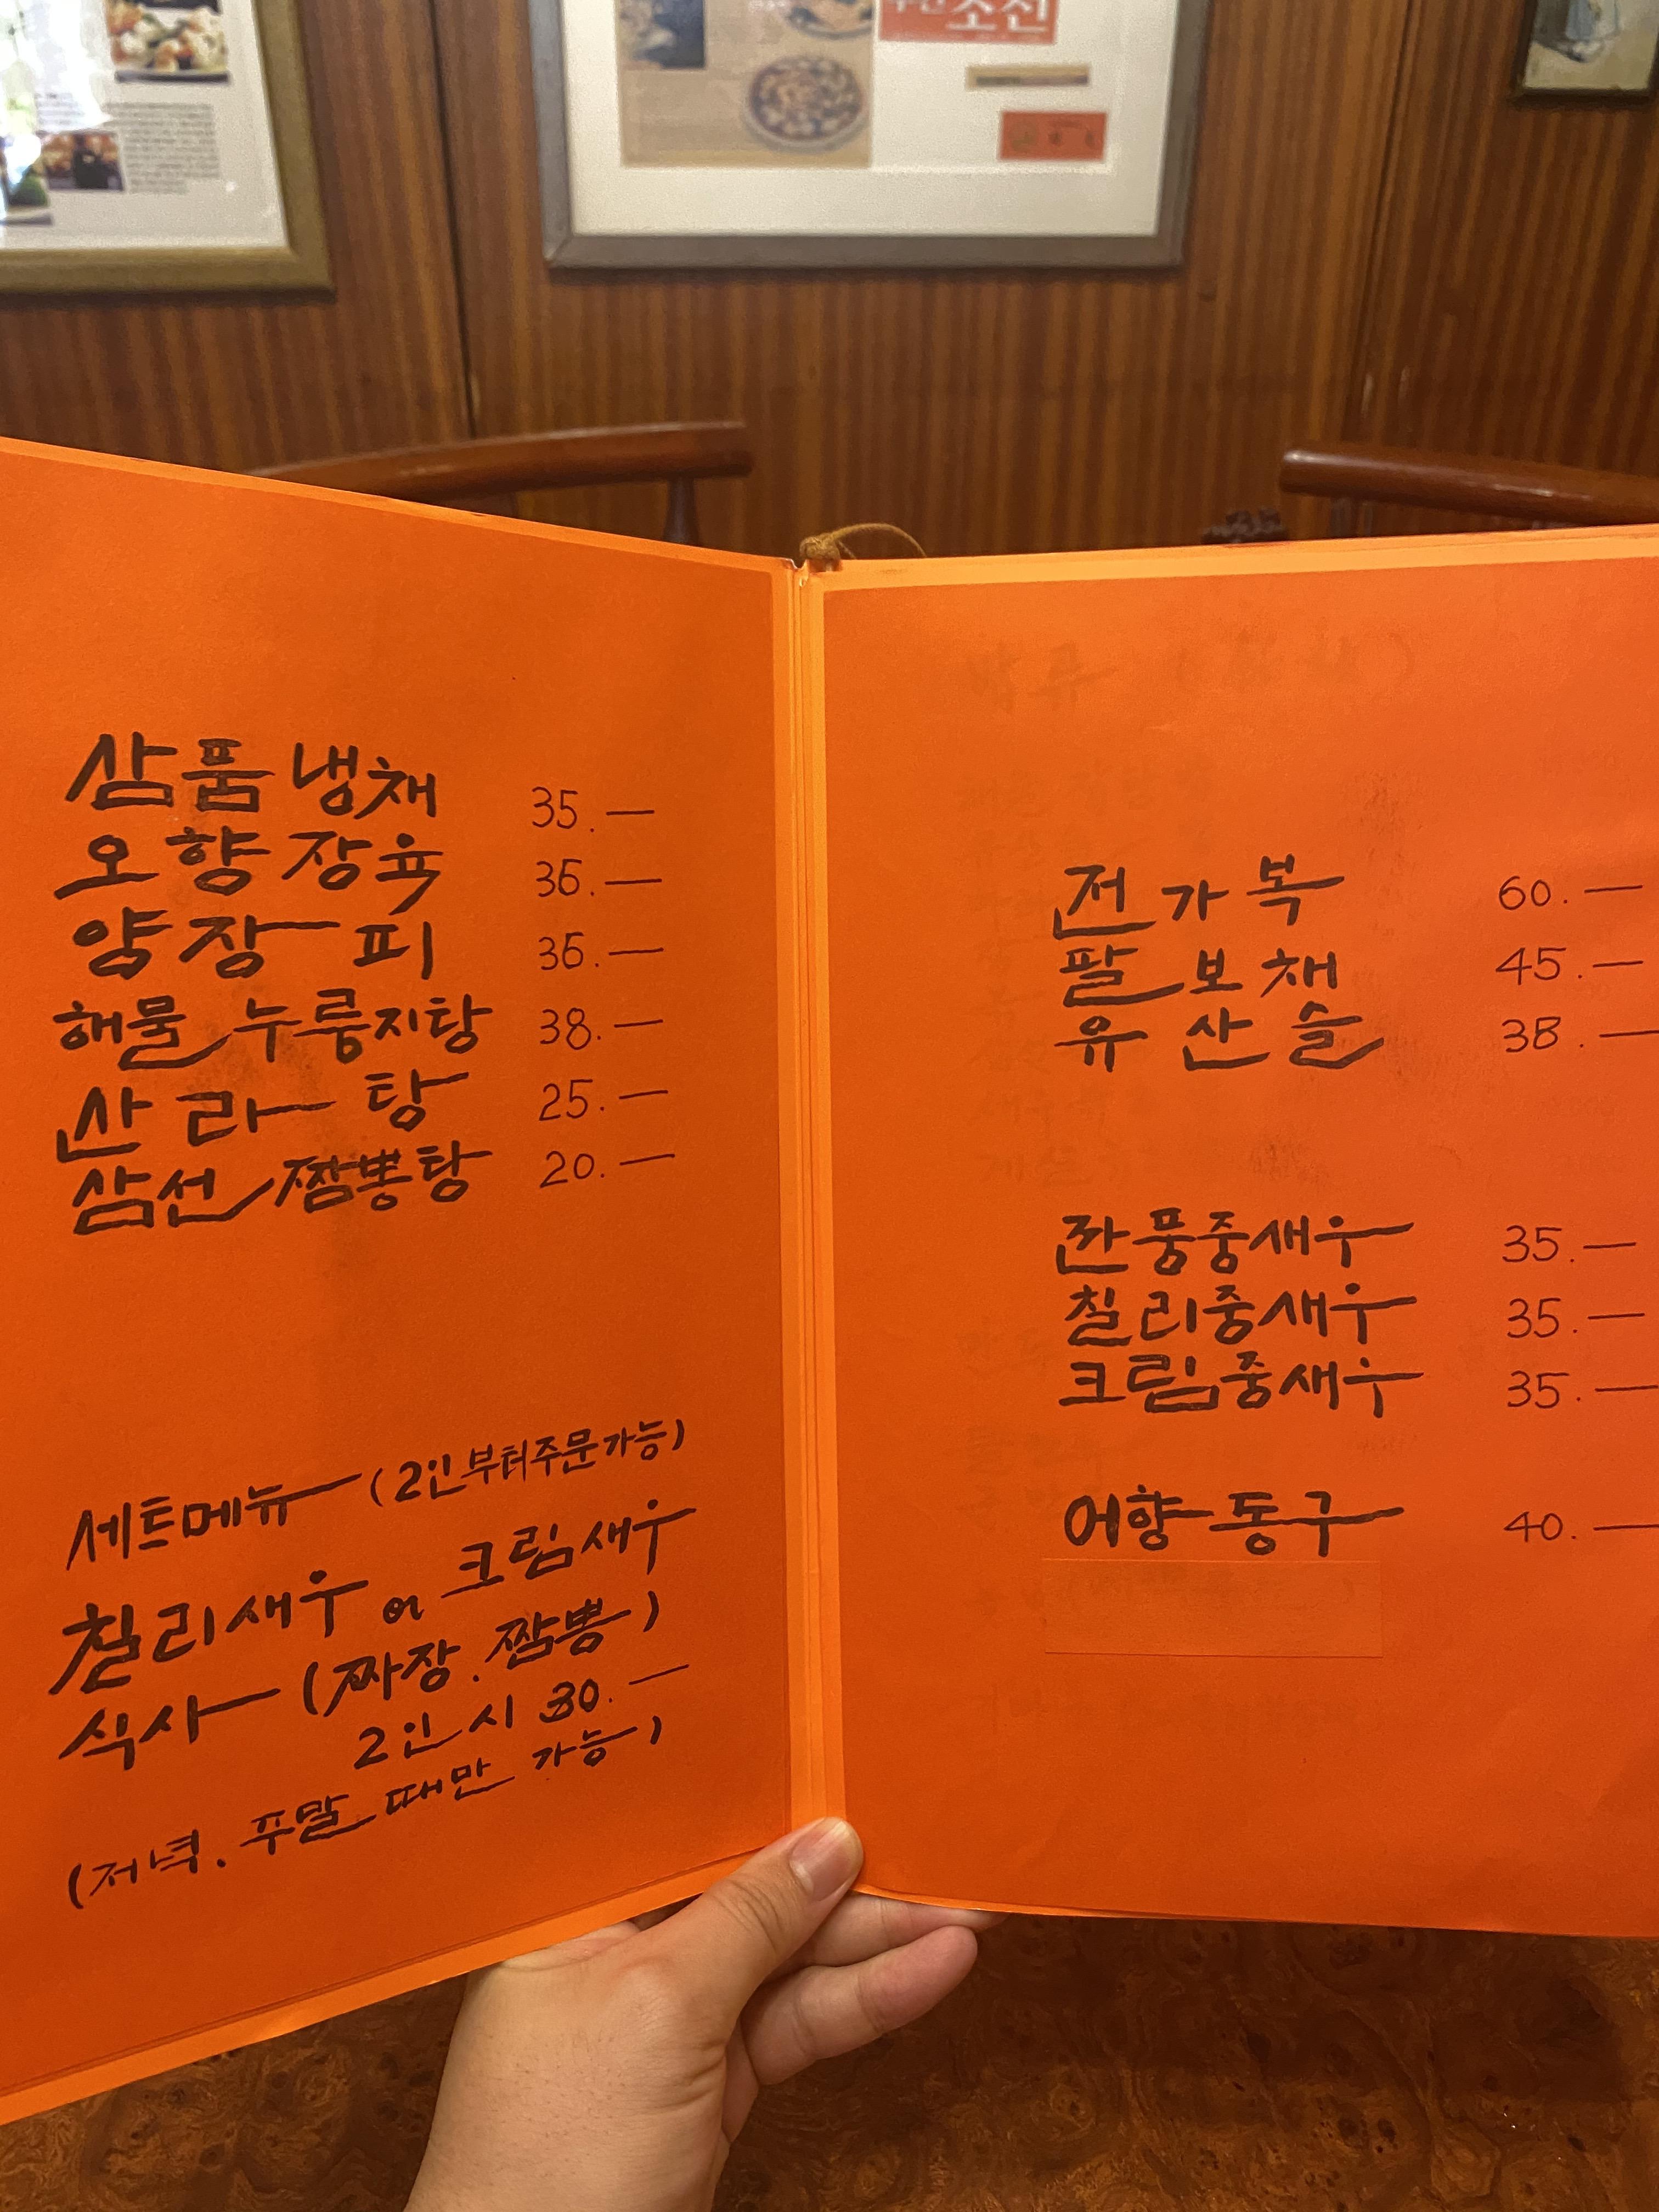 조선
삼품냉채 35.—
오향장육 36.—
양장피 36.—
해물누룽지탕 38.—
산라탕 25.—
삼선짬뽕탕 20.—
세트메뉴 (2인부터주문가능)
칠리새우 or 크림새우
식사 (짜장.짬뽕)
2인시 30.—
(저녁.주말때만 가능)
전가복 60.—
팔보채 45.—
유산슬 38.—
깐풍중새우 35.—
칠리중새우 35.—
크림중새우 35.—
어향동구 40.—